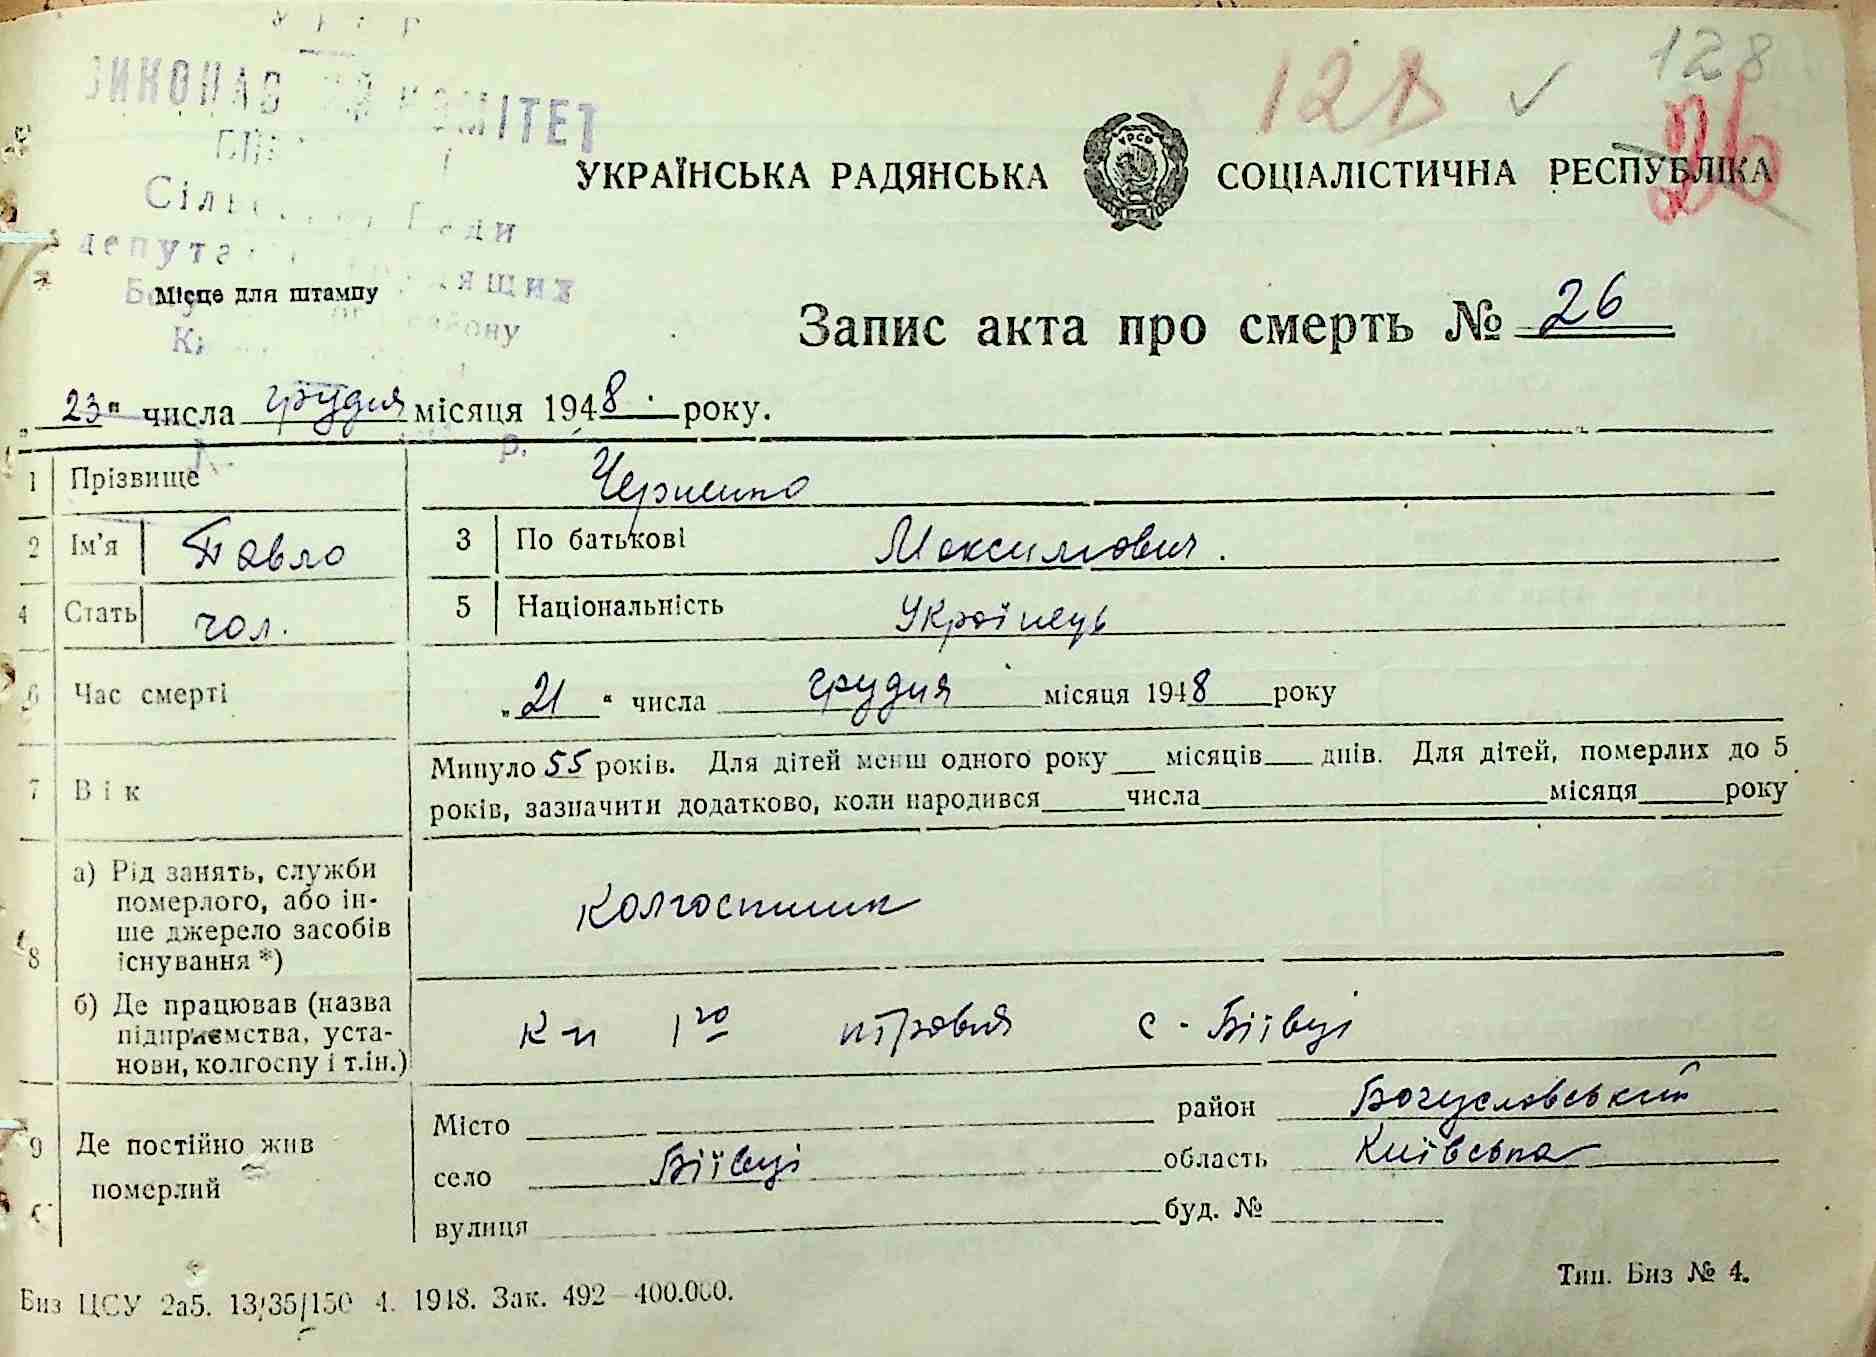 128
128
26
КОМІТЕТ
УКРАЇНСЬКА РАДЯНСЬКА СОЦІАЛІСТИЧНА РЕСПУБЛІКА
Місце для штампу
Запис акта про смерть № 26
„23" числа грудня місяця 1948 року.
1 Прізвище Черненко
2 Ім'я Павло 3 По батькові Максимович.
4 Стать чол. 5 Національність Українець
6 Час смерті „21" числа грудня місяця 1948 року
7 Вік Минуло 55 років. Для дітей менш одного року місяців днів. Для дітей, померлих до 5
років, зазначити додатково, коли народився числа місяця року
8 а) Рід занять, служби
померлого, або ін-
ше джерело засобів
існування *)
колгоспник
б) Де працював (назва
підприємства, уста-
нови, колгоспу і т.ін.)
к-п 1го травня с. Біївці
9 Де постійно жив
померлий
Місто район Богуславський
село Біївці область Київська
вулиця буд. №
Биз ЦСУ 2а5. 13/35/150 4. 1948. Зак. 492—400.000.
Тип. Биз № 4.